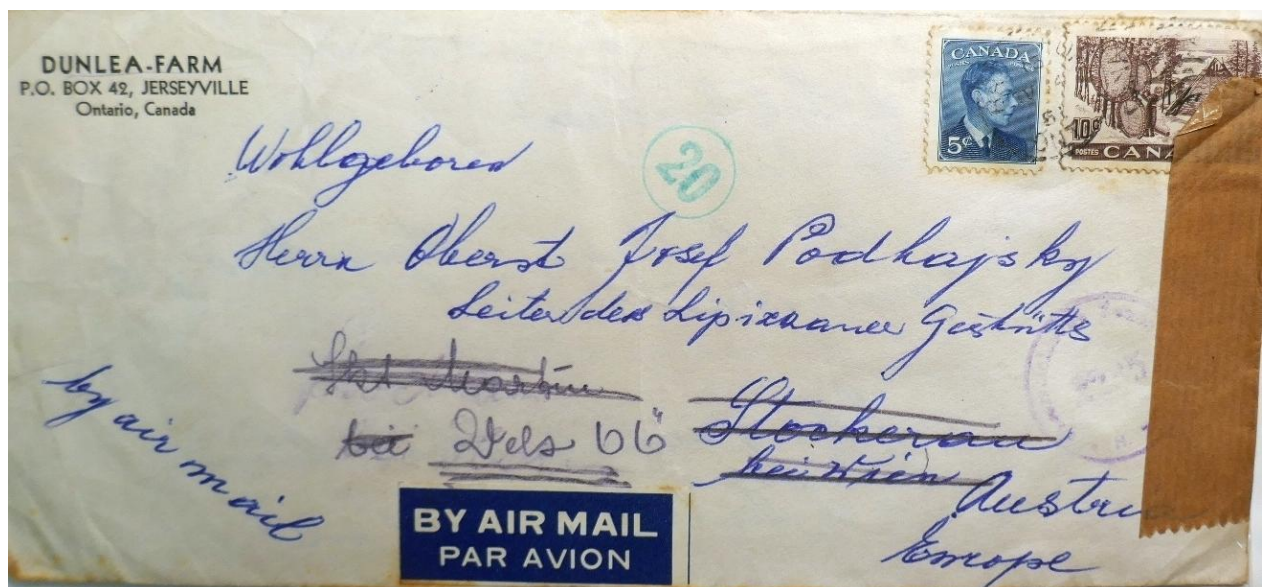 DUNLEA-FARM
P.O. BOX 42, JERSEYVILLE
Ontario, Canada
CANADA
5¢
10¢
POSTES CANA
20
Wohlgeboren
Herrn Oberst Josef Podhajsky
Leiter des Lipizzaner Gestütts
Skt Martin
bei Wels OÖ
Stockerau
bei Wien
Austria
Europe
by air mail
BY AIR MAIL
PAR AVION